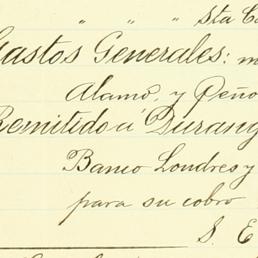 " " " Sta Ca
Gastos Generales: m
Alamo, y Peño
Remitido a' Durang
Banco Londres y
para su cobro
S. E